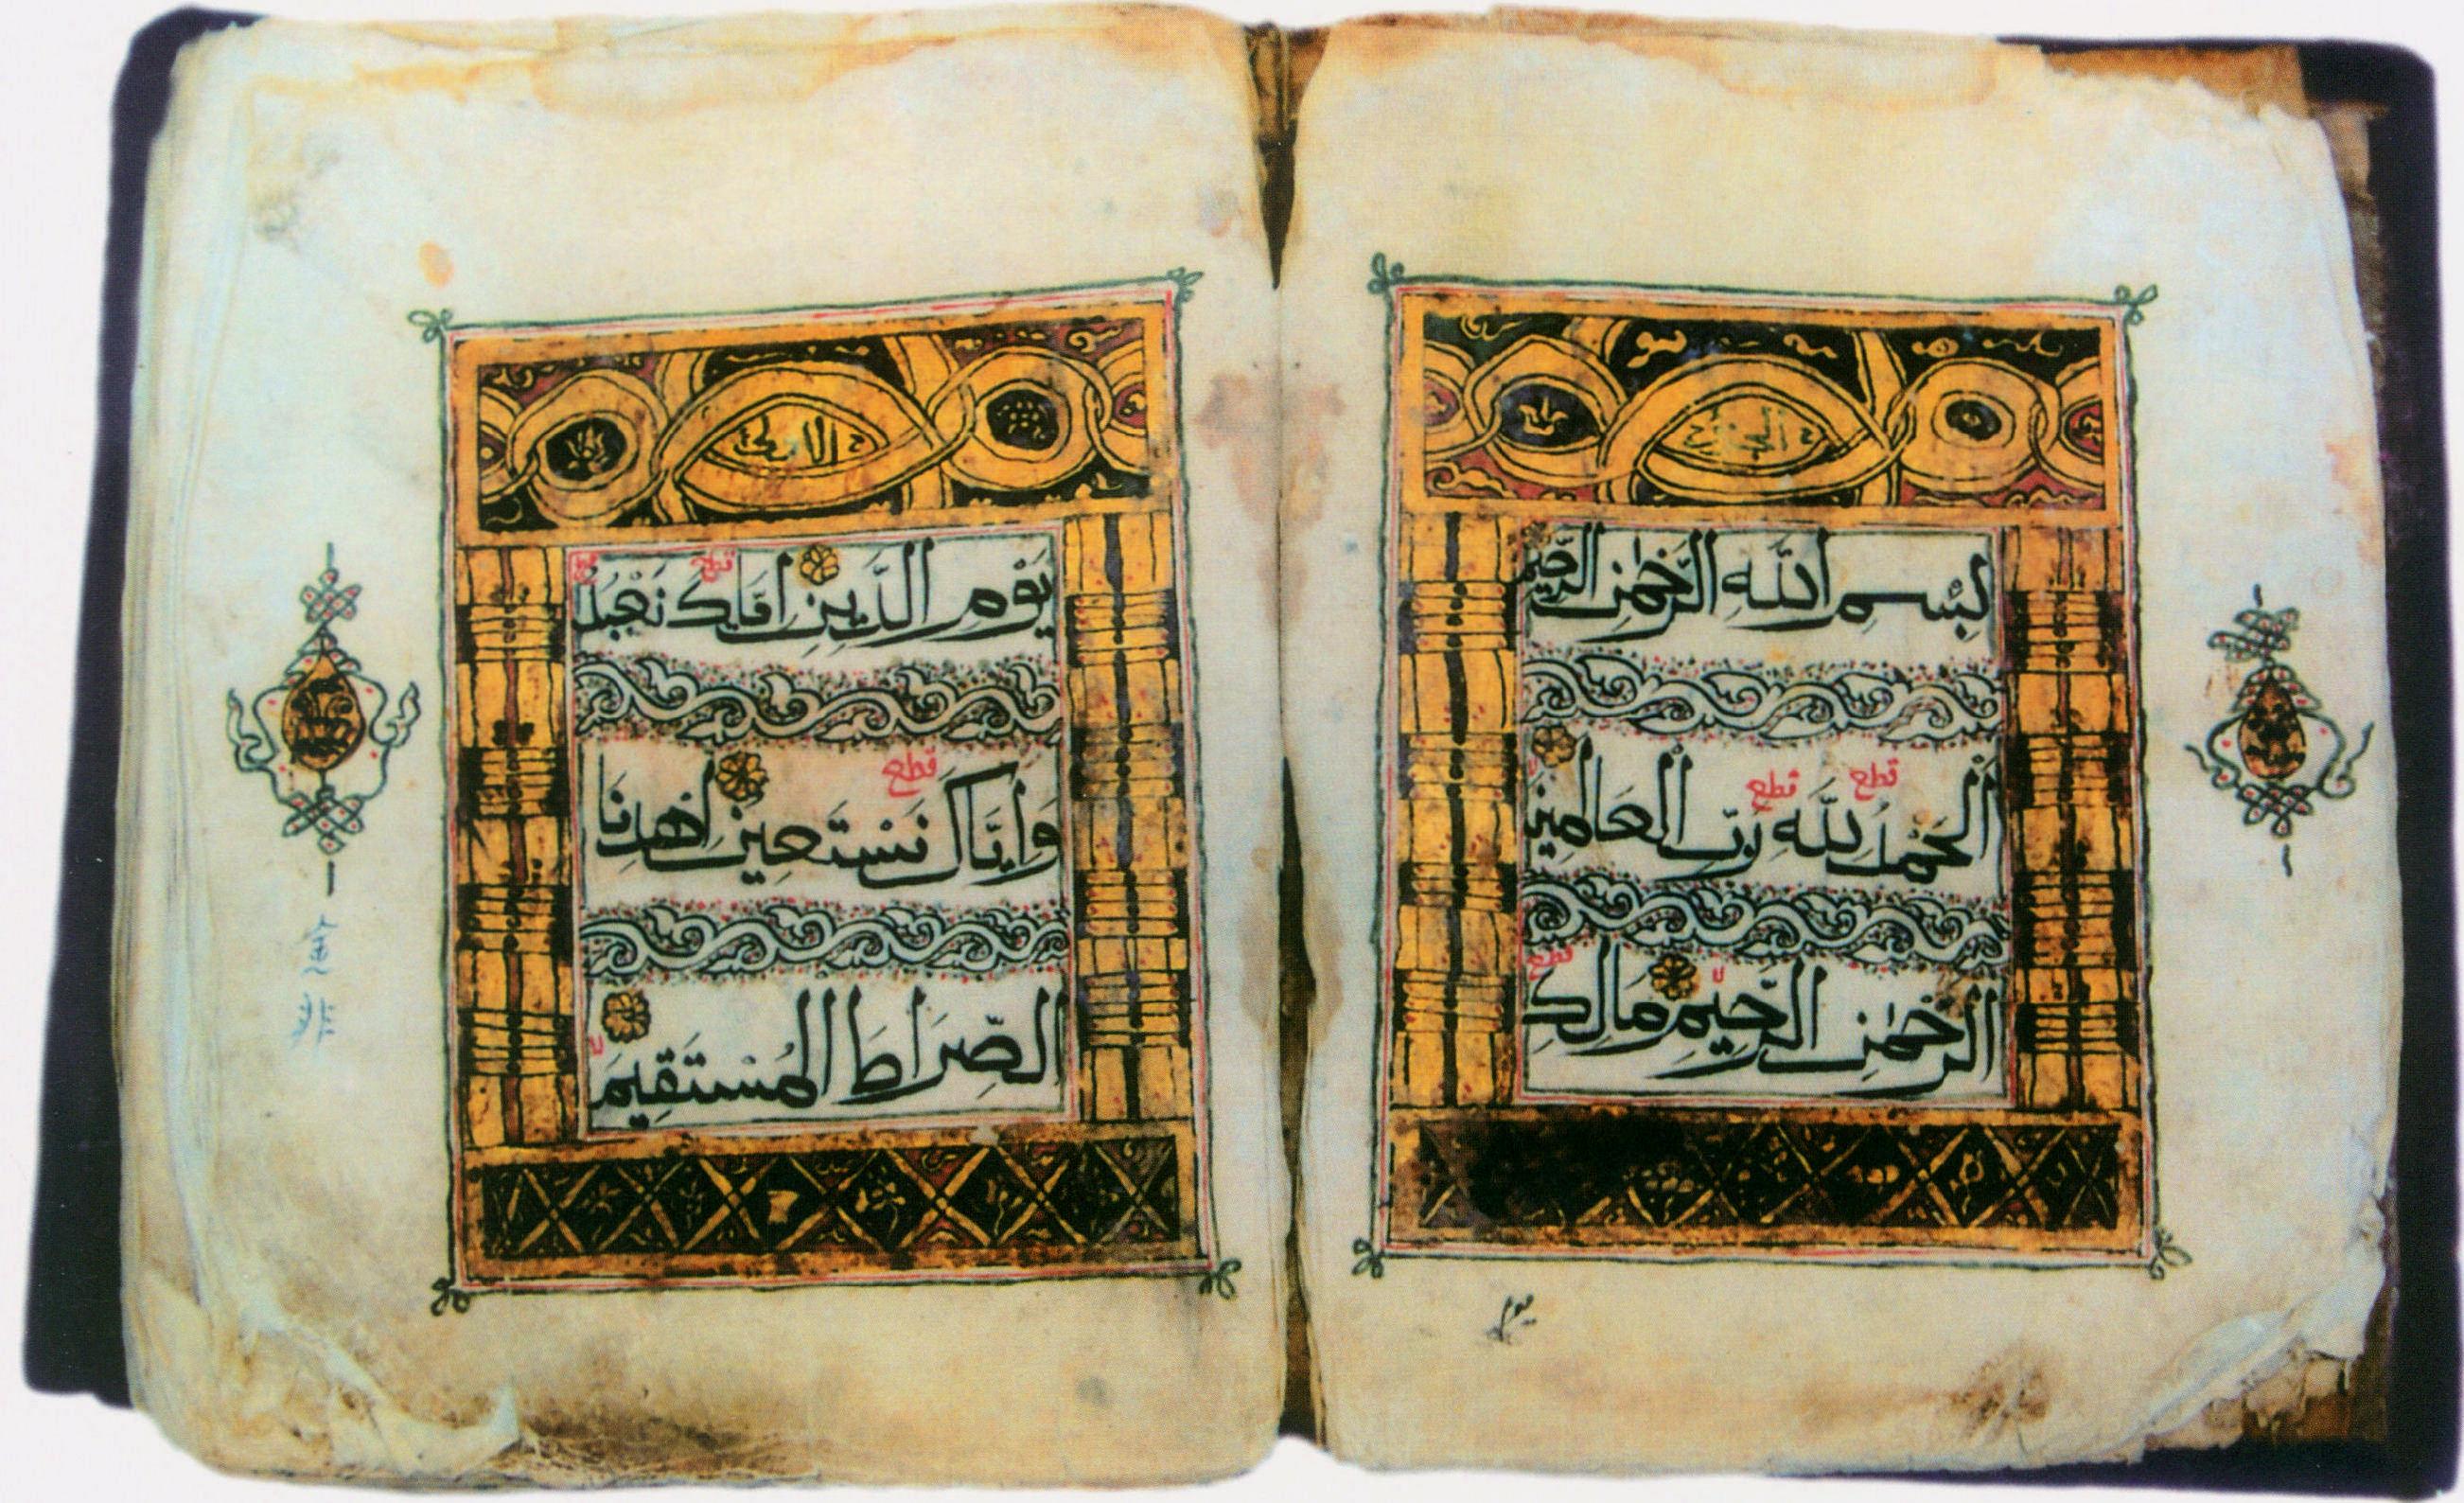 بِسْمِ اللَّهِ الرَّحْمٰنِ الرَّحِيمِ
قطع قطع
الْحَمْدُ لِلَّهِ رَبِّ الْعَالَمِينَ
لا قطع
الرَّحْمٰنِ الرَّحِيمِ مَالِكِ
قطع
يَوْمِ الدِّينِ اِيَّاكَ نَعْبُدُ
قطع
وَاِيَّاكَ نَسْتَعِينُ اِهْدِنَا
لا
الصِّرَاطَ الْمُسْتَقِيمَ